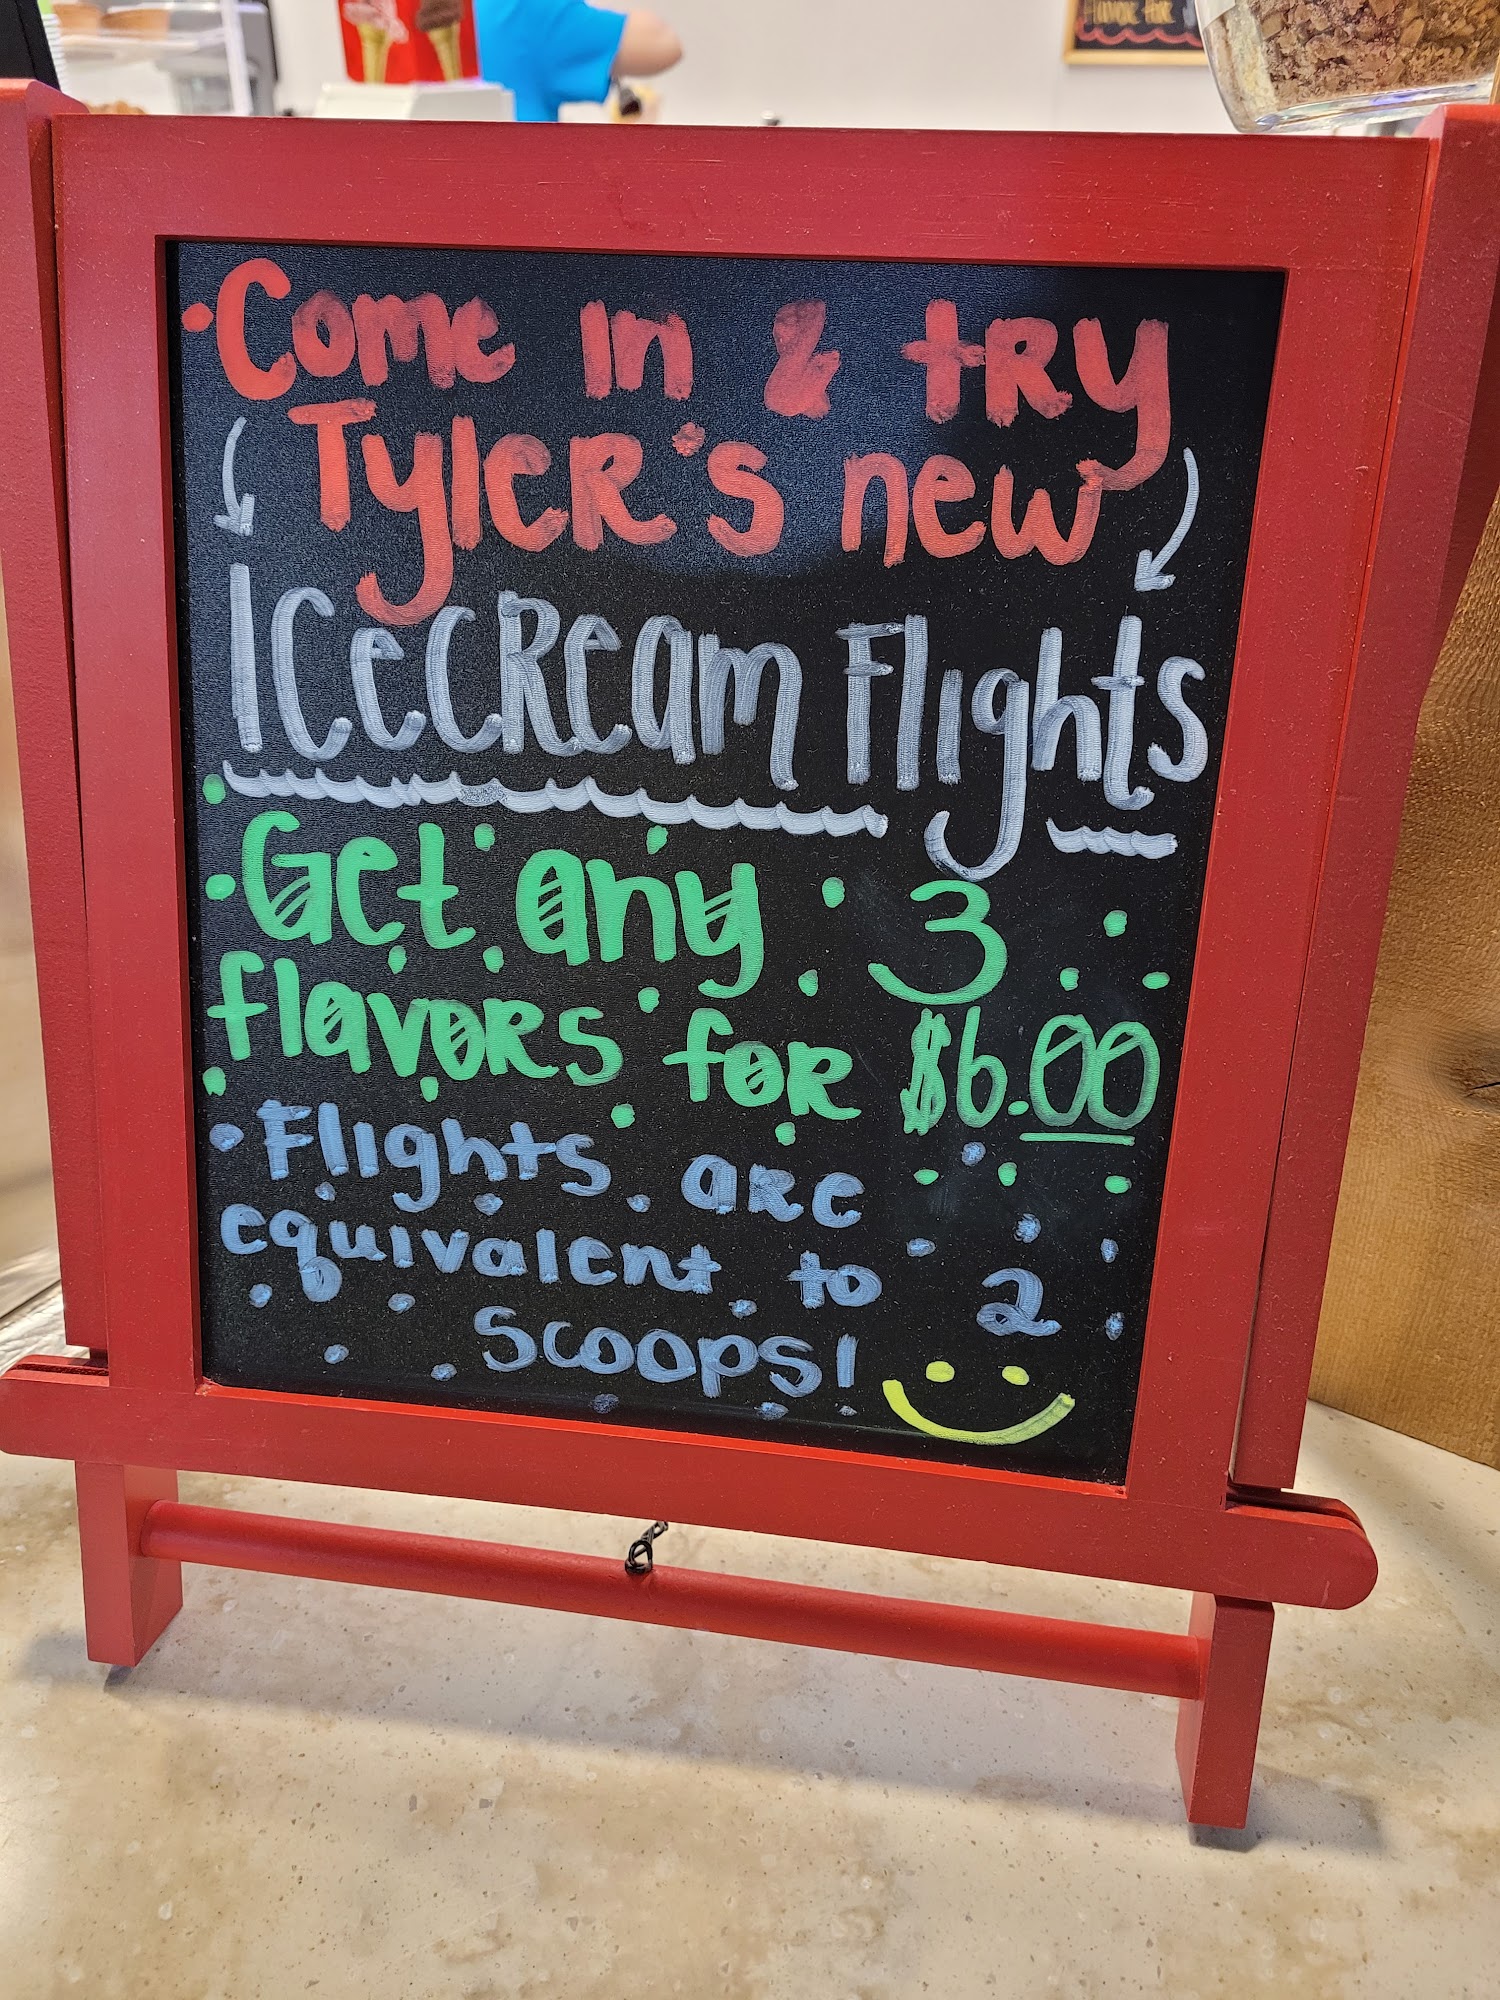 FlavoR FoR
• Come in & tRy
TyleR's new
IcecReam Flights
Get any 3
flavoRs foR $6.00
• Flights aRe
equivalent to 2
Scoops!